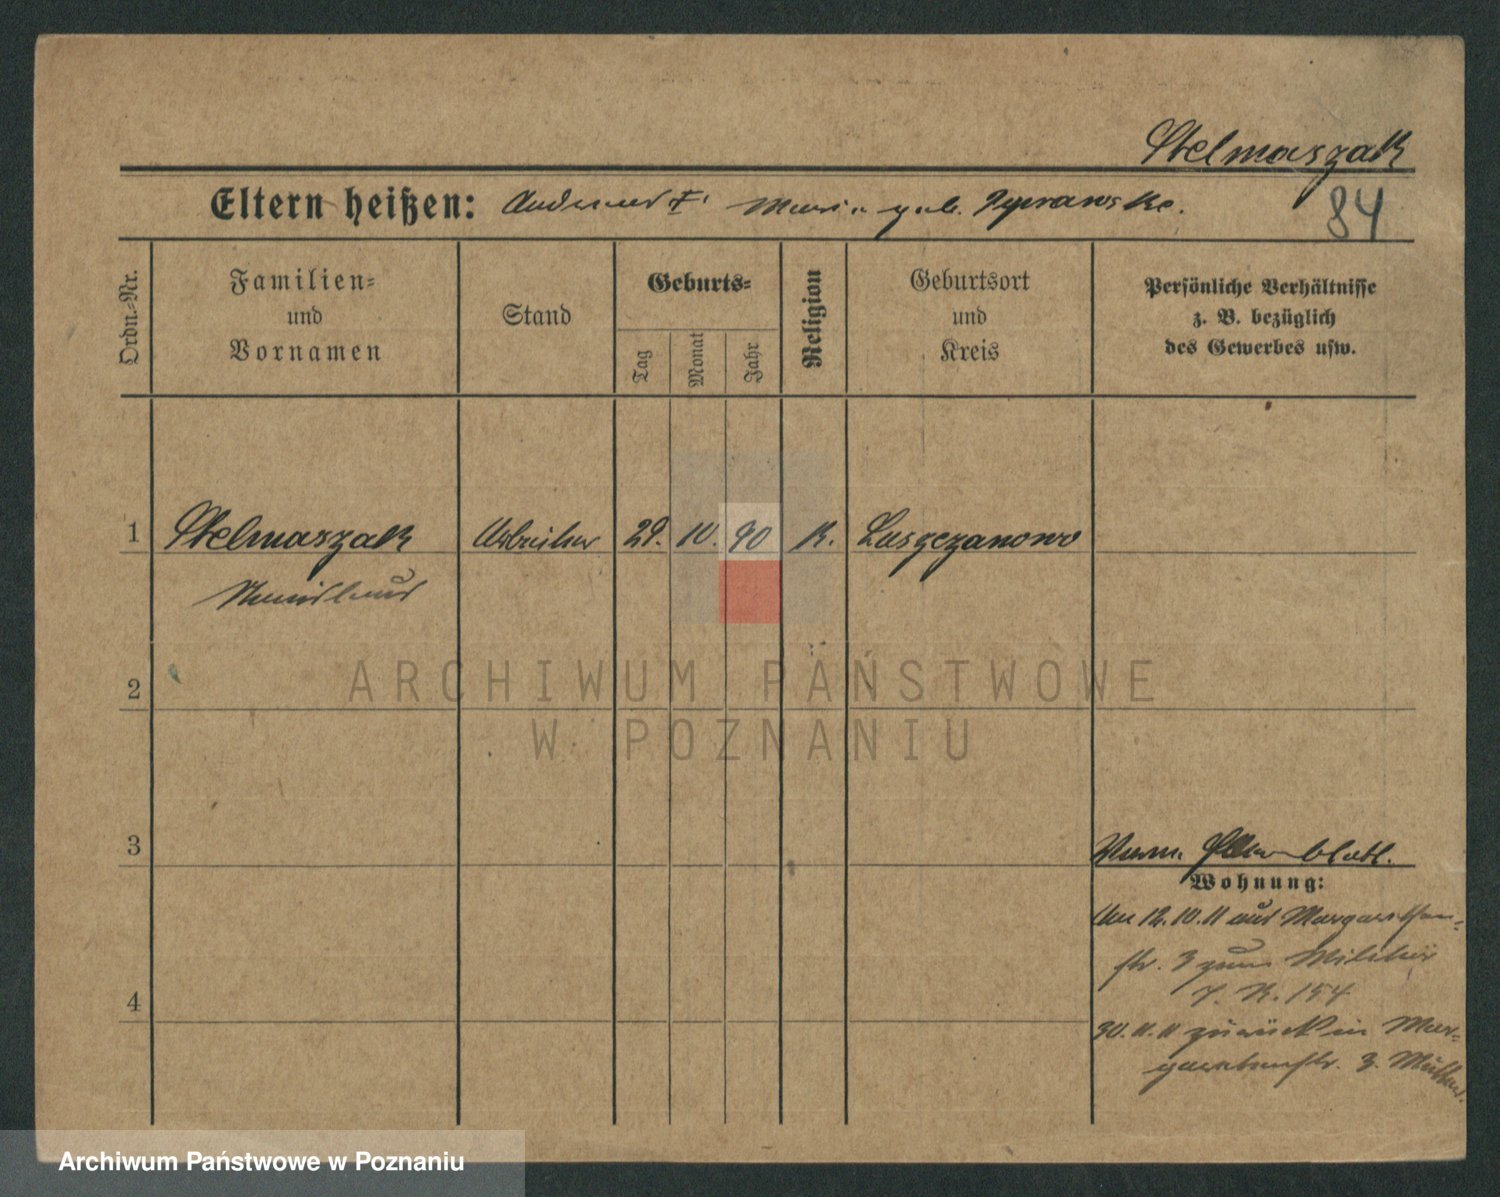 Stelmaszak
Eltern heißen: Andreas †. Maria geb.
84
Ordn.-Nr.
Familien-
und
Vornamen
Stand
Geburts-
Tag
Monat
Jahr
Religion
Geburtsort
und
Kreis
Persönliche Verhältnisse
z. B. bezüglich
des Gewerbes usw.
1 Stelmaszak Arbeiter 29. 10. 90 K. Luszczanowo
Stanislaus
2
3
4
blatt.
Wohnung:
Am 12.10.11 aus Margarethen-
str. 3 zum Militär
154
30.11.11 zurück in Mar-
garetenstr. 3.
ARCHIWUM PAŃSTWOWE
W POZNANIU
Archiwum Państwowe w Poznaniu